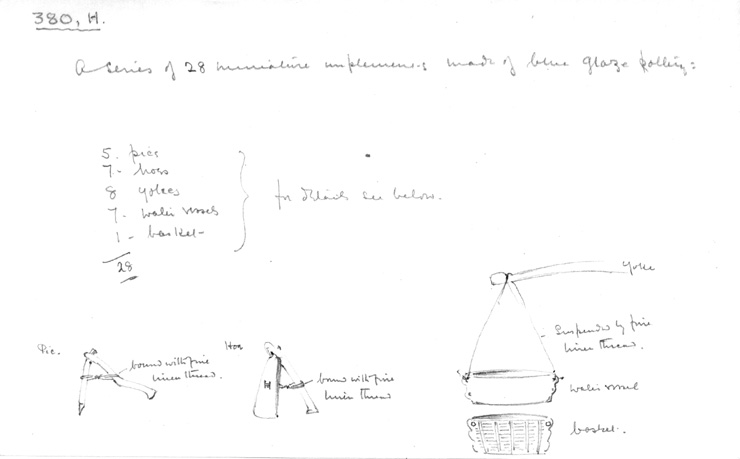 380, H.
A series of 28 miniature implements made of blue glaze pottery:
5. pics
7 - hoes
8 yokes
7 - water vessels
1 - basket -
28
for details see below.
Yoke
Pic.
bound with fine
linen thread.
Hoe
bound with fine
linen thread
Suspended by fine
linen thread.
water vessel
basket.